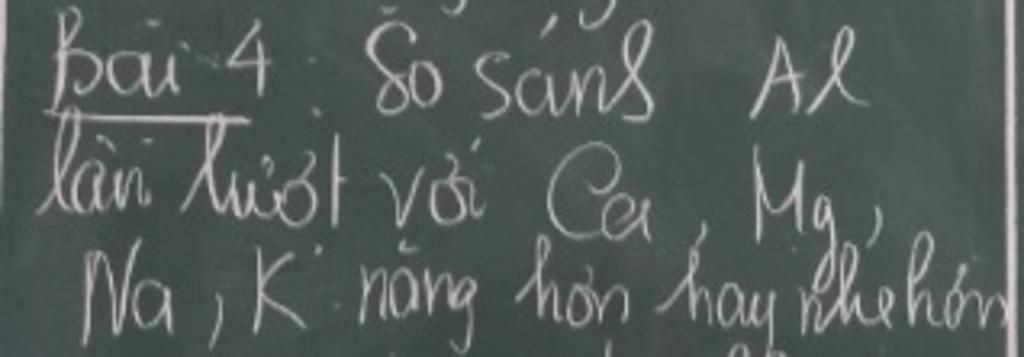 Bài 4: So sánh Al
lần lượt với Ca, Mg,
Na, K nặng hơn hay nhẹ hơn